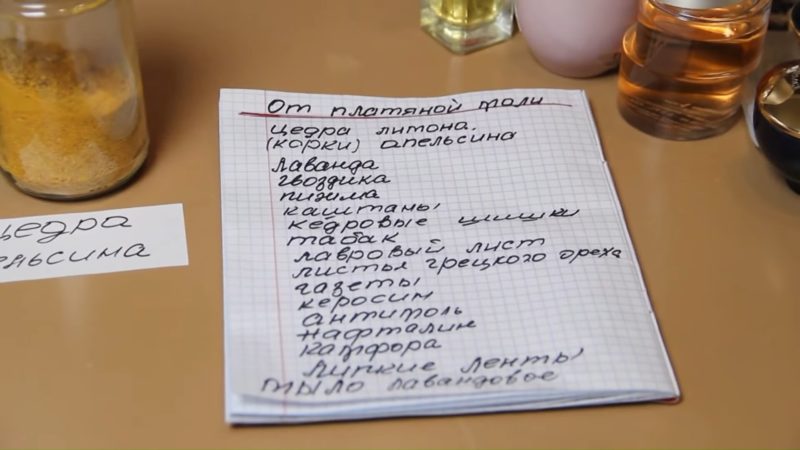 От платяной моли
цедра лимона
(корки) апельсина
лаванда
гвоздика
пижма
каштаны
кедровые шишки
табак
лавровый лист
листья грецкого ореха
газеты
керосин
антимоль
нафталин
камфора
липкие ленты
мыло лавандовое
цедра
ельсина